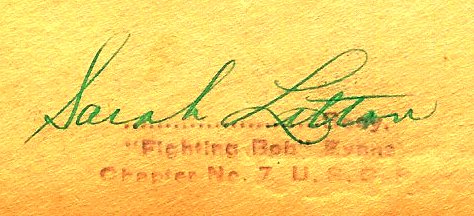 Sarah Litton
"Fighting Bob" Evans
Chapter No. 7, U. S.